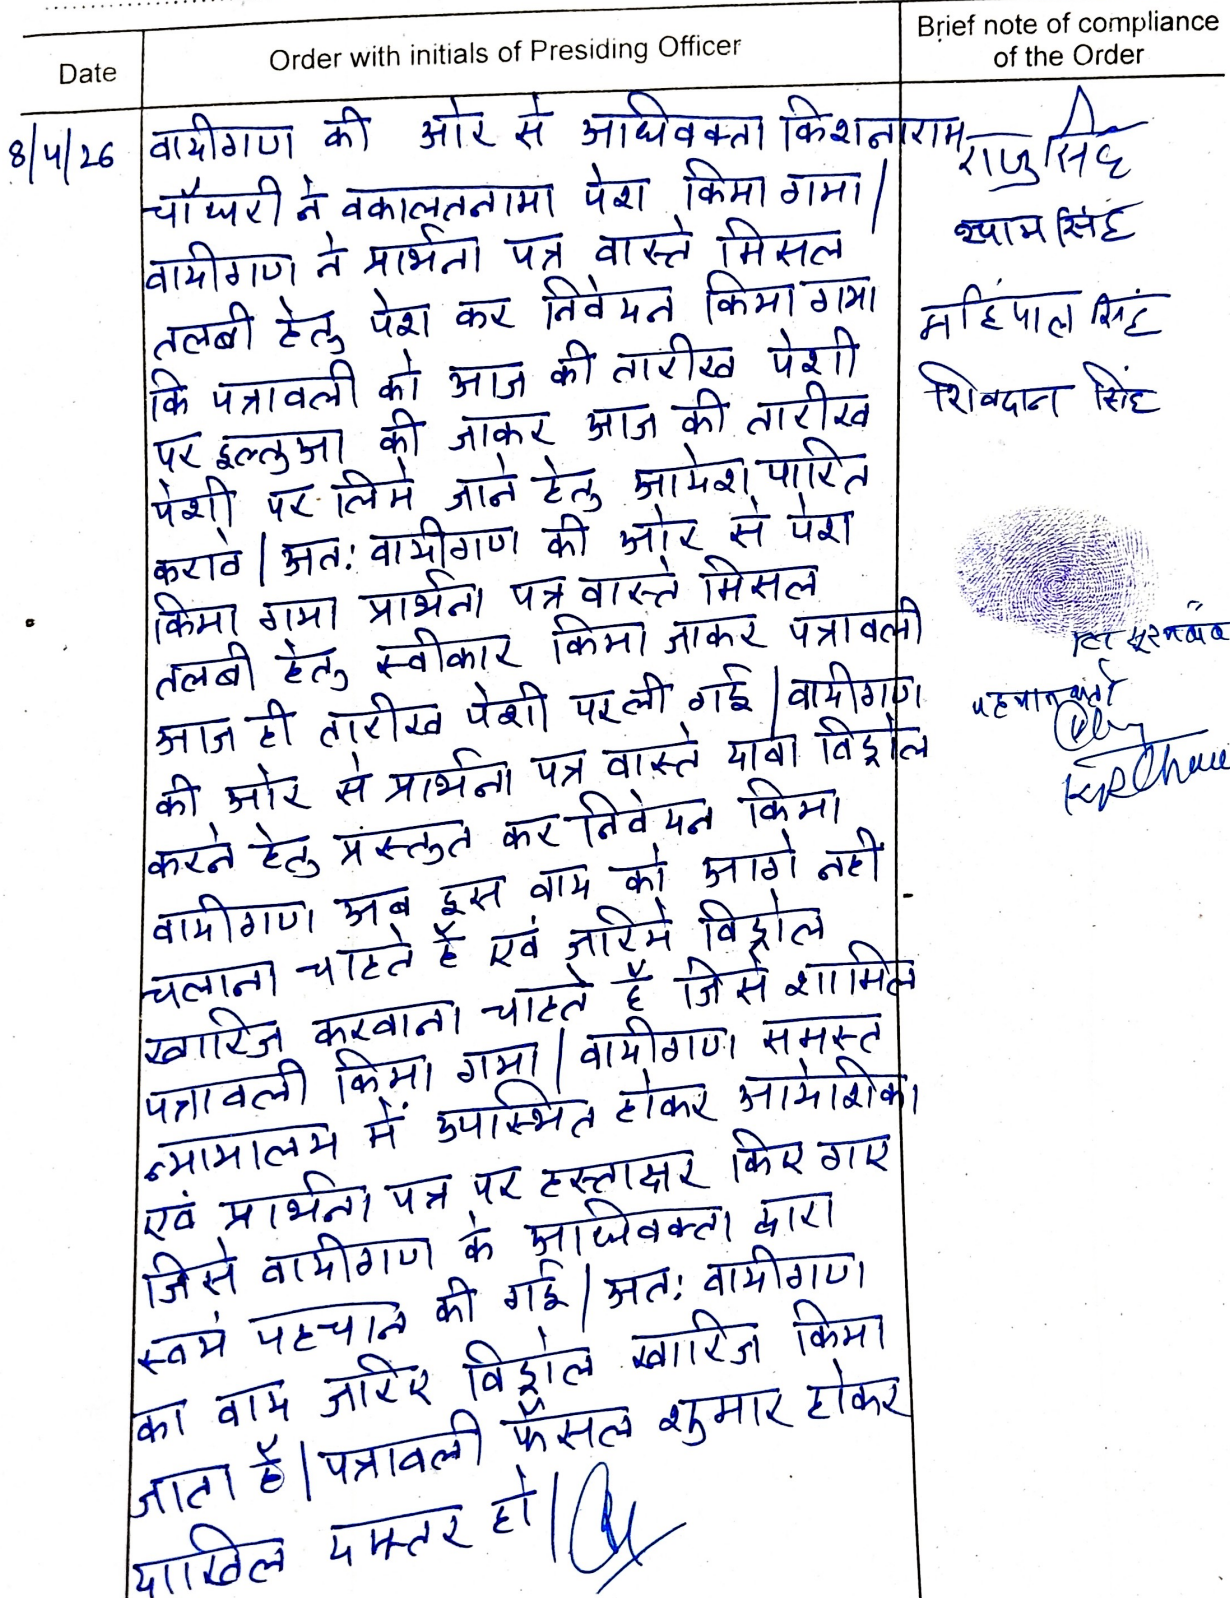 Date
Order with initials of Presiding Officer
Brief note of compliance
of the Order
8/4/26
वादीगण की ओर से अधिवक्ता किशनाराम
चौधरी ने वकालतनामा पेश किया गया।
वादीगण ने प्रार्थना पत्र वास्ते मिसल
तलबी हेतु पेश कर निवेदन किया गया
कि पत्रावली को आज की तारीख पेशी
पर इल्तुआ की जाकर आज की तारीख
पेशी पर लिये जाने हेतु आदेश पारित
करावे। अतः वादीगण की ओर से पेश
किया गया प्रार्थना पत्र वास्ते मिसल
तलबी हेतु स्वीकार किया जाकर पत्रावली
आज ही तारीख पेशी पर ली गई। वादीगण
की ओर से प्रार्थना पत्र वास्ते दावा विड्रोल
करने हेतु प्रस्तुत कर निवेदन किया
वादीगण अब इस वाद को आगे नही
चलाना चाहते है एवं जरिये विड्रोल
खारिज करवाना चाहते है जिसे शामिल
पत्रावली किया गया। वादीगण समस्त
न्यायालय में उपस्थित होकर आदेशिका
एवं प्रार्थना पत्र पर हस्ताक्षर किए गए
जिसे वादीगण के अधिवक्ता द्वारा
स्वयं पहचान की गई। अतः वादीगण
का वाद जरिए विड्रोल खारिज किया
जाता है। पत्रावली फैसल शुमार होकर
दाखिल दफ्तर हो।
राजुसिंह
श्याम सिंह
महिंपाल सिंह
शिवदान सिंह
पहचानकर्ता